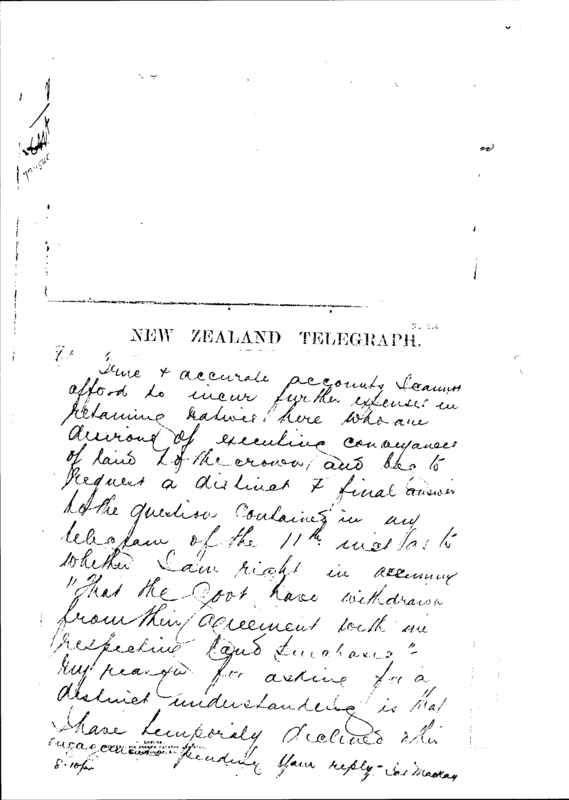 NEW ZEALAND TELEGRAPH.
True & accurate accounts I cannot
afford to incur further expenses in
retaining natives here who are
desirous of executing conveyances
of land to the crown, and beg to
request a distinct & final answer
to the question contained in my
telegram of the 11th inst as to
whether I am right in assuming
"That the Govt have withdrawn
from their agreement with me
respecting land purchases" -
My reason for asking for a
distinct understanding is that
I have temporaly declined other
pending your reply - Jas Mackay
8-10 pm